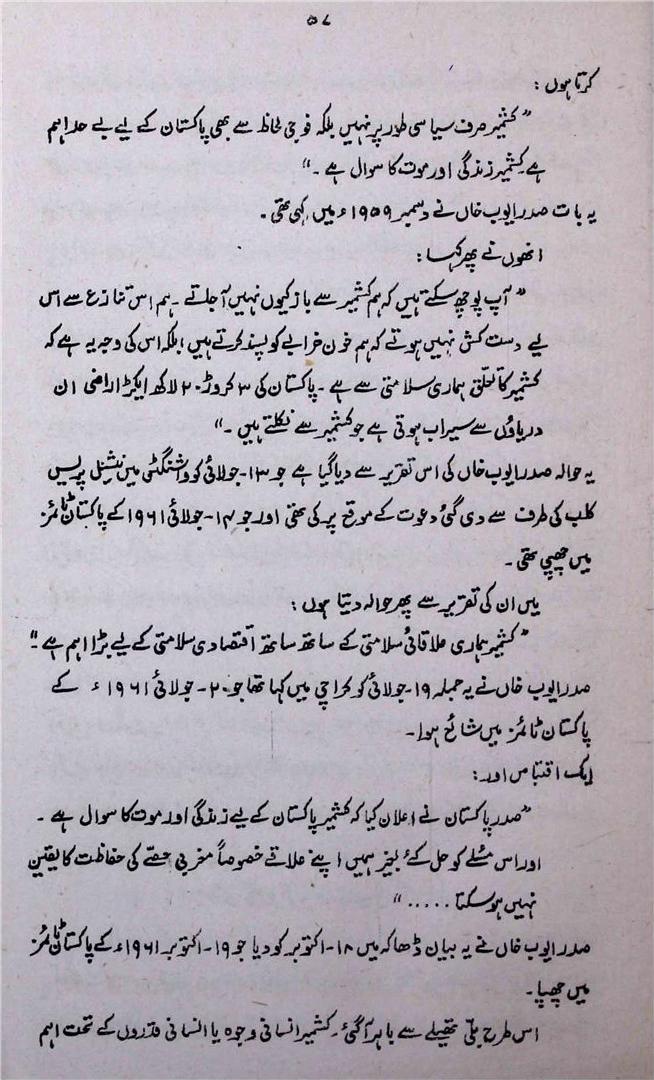 ۵۷
کرتا ہوں :
”کشمیر صرف سیاسی طور پر نہیں بلکہ فوجی لحاظ سے بھی پاکستان کے لیے بے حد اہم
ہے۔ کشمیر زندگی اور موت کا سوال ہے ۔“
یہ بات صدر ایوب خاں نے دسمبر ۱۹۵۹ء میں کہی تھی ۔
انھوں نے پھر کہا :
”آپ پوچھ سکتے ہیں کہ ہم کشمیر سے باز کیوں نہیں آجاتے ۔ ہم اس تنازع سے اس
لیے دست کش نہیں ہوتے کہ ہم خون خرابے کو پسند کرتے ہیں ؛ بلکہ اس کی وجہ یہ ہے کہ
کشمیر کا تعلق ہماری سلامتی سے ہے ۔ پاکستان کی ۳ کروڑ ۲۰ لاکھ ایکڑ اراضی ان
دریاؤں سے سیراب ہوتی ہے جو کشمیر سے نکلتے ہیں ۔“
یہ حوالہ صدر ایوب خاں کی اس تقریر سے دیا گیا ہے جو ۱۳۔ جولائی کو واشنگٹن میں نیشنل پریس
کلب کی طرف سے دی گئی دعوت کے موقع پر کی تھی اور جو ۱۴۔ جولائی ۱۹۶۱ کے پاکستان ٹائمز
میں چھپی تھی ۔
میں ان کی تقریر سے پھر حوالہ دیتا ہوں :
”کشمیر ہماری علاقائی سلامتی کے ساتھ ساتھ اقتصادی سلامتی کے لیے بڑا اہم ہے ۔“
صدر ایوب خاں نے یہ جملہ ۱۹۔ جولائی کو کراچی میں کہا تھا جو ۲۰۔ جولائی ۱۹۶۱ء کے
پاکستان ٹائمز میں شائع ہوا ۔
ایک اقتباس اور :
”صدر پاکستان نے اعلان کیا کہ کشمیر پاکستان کے لیے زندگی اور موت کا سوال ہے ۔
اور اس مسئلے کو حل کئے بغیر ہمیں اپنے علاقے خصوصاً مغربی حصے کی حفاظت کا یقین
نہیں ہو سکتا . . . . . “
صدر ایوب خاں نے یہ بیان ڈھاکہ میں ۱۸۔ اکتوبر کو دیا جو ۱۹۔ اکتوبر ۱۹۶۱ء کے پاکستان ٹائمز
میں چھپا ۔
اس طرح بلی تھیلے سے باہر آگئی ۔ کشمیر انسانی وجوہ یا انسانی قدروں کے تحت اہم